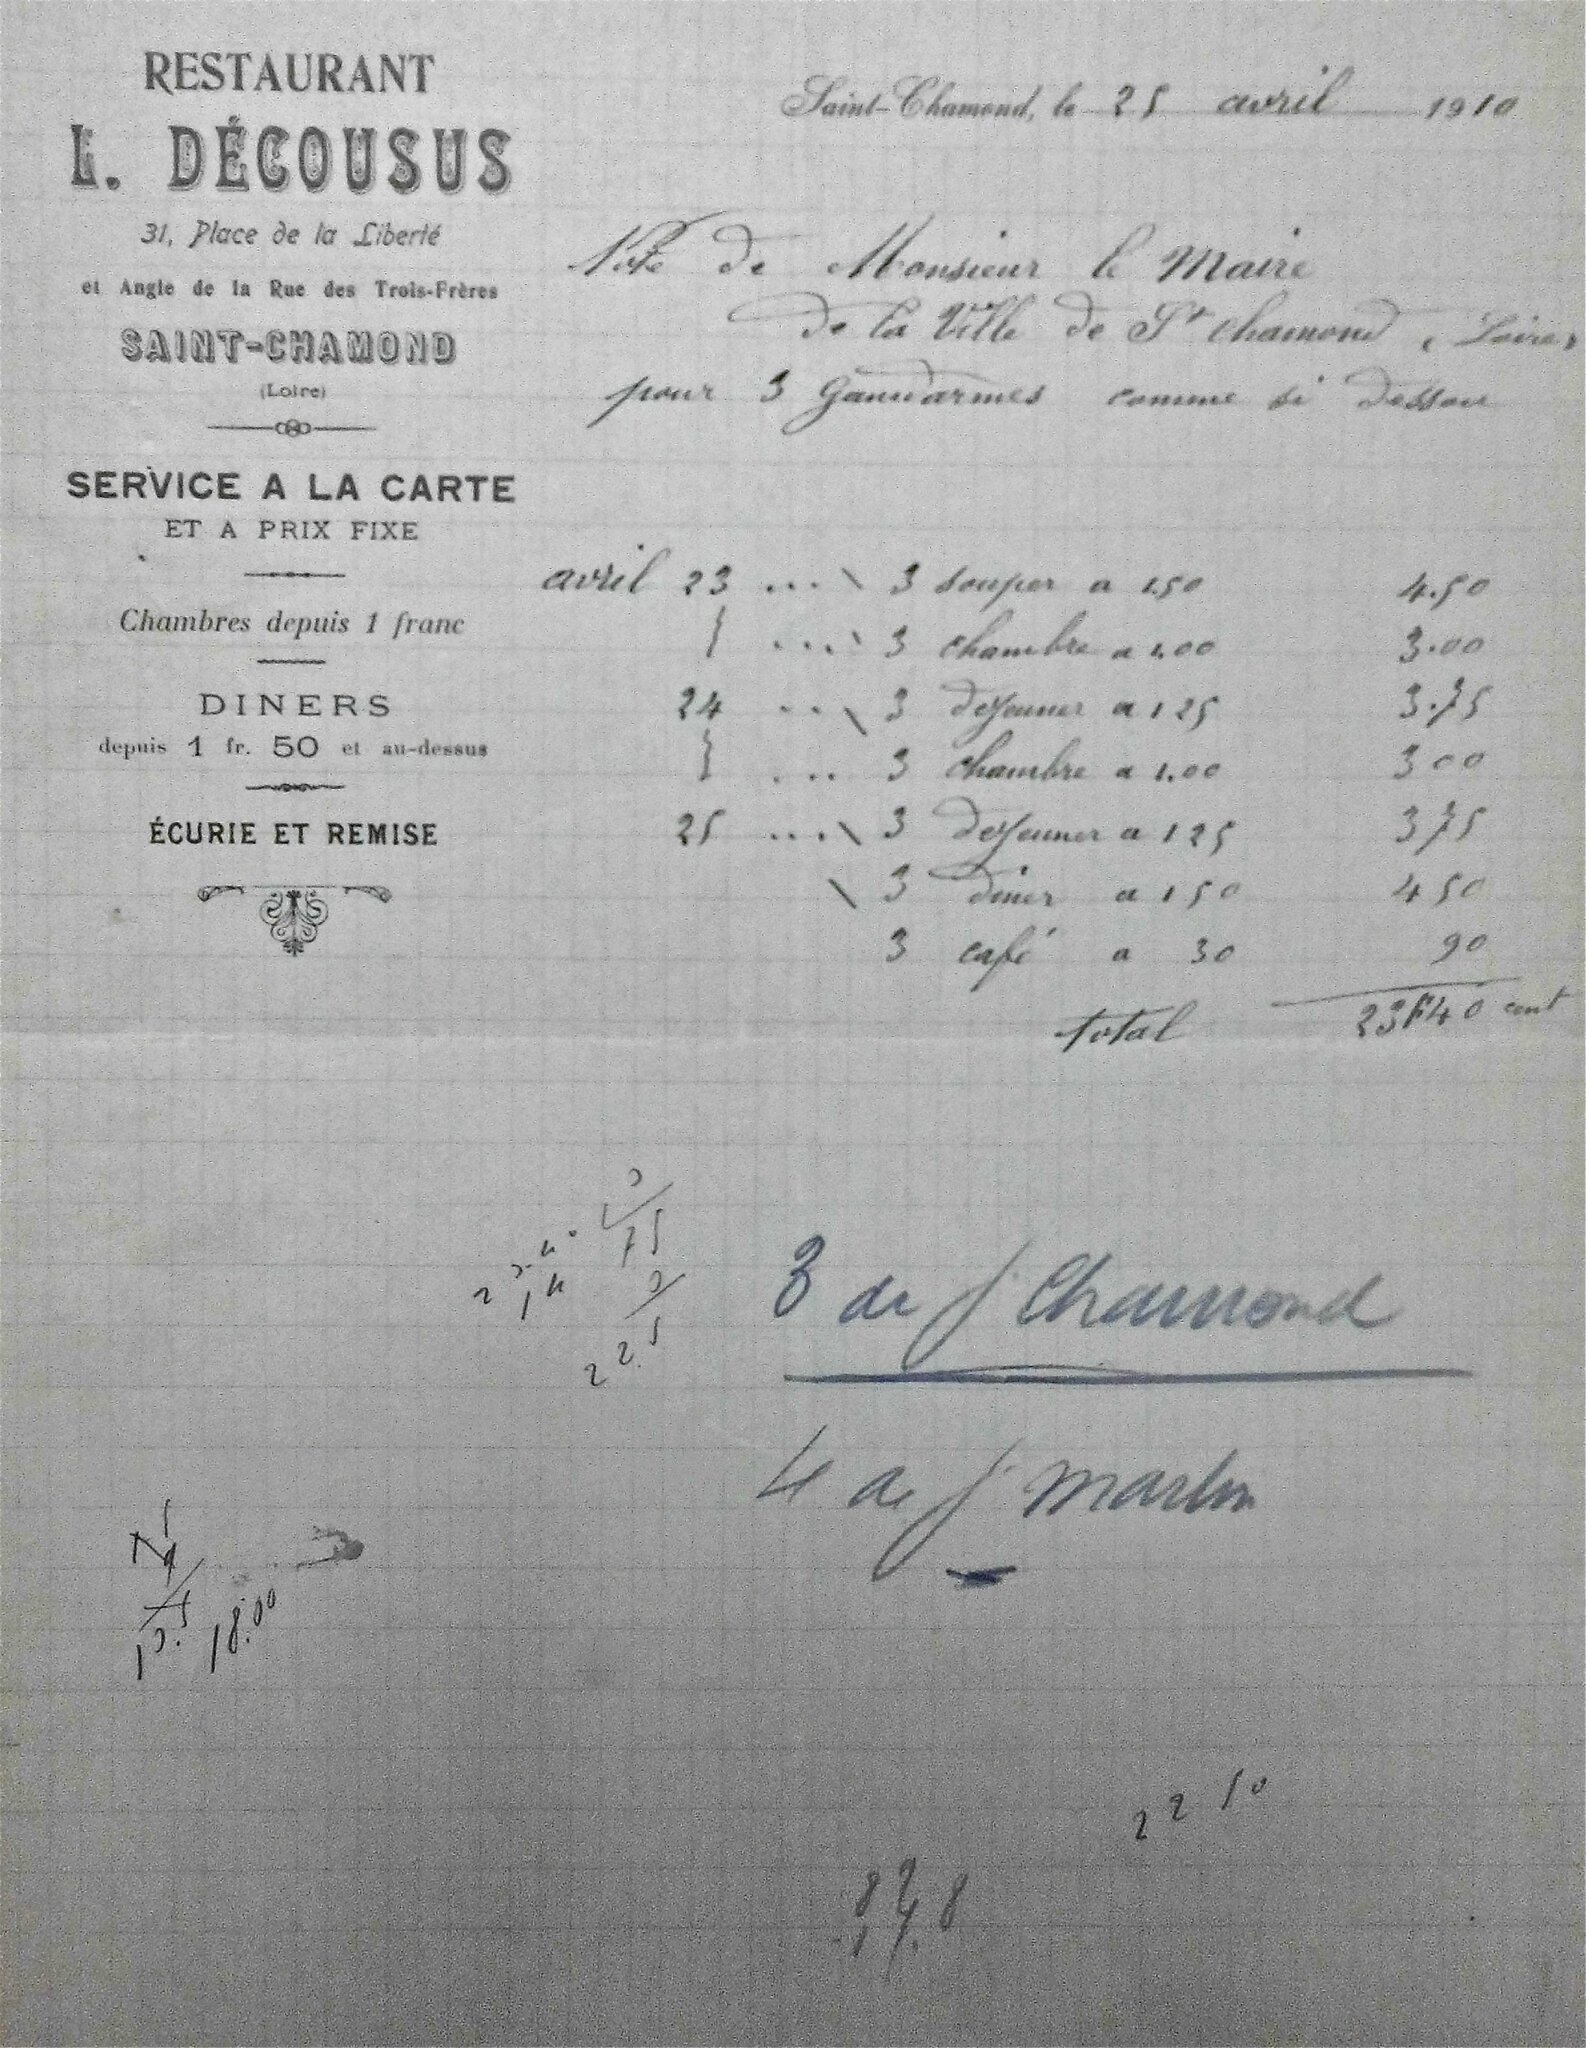 RESTAURANT
L. DÉCOUSUS
31, Place de la Liberté
et Angle de la Rue des Trois-Frères
SAINT-CHAMOND
(Loire)
SERVICE A LA CARTE
ET A PRIX FIXE
Chambres depuis 1 franc
DINERS
depuis 1 fr. 50 et au-dessus
ÉCURIE ET REMISE
Saint-Chamond, le 25 avril 1910
Note de Monsieur le Maire
de la Ville de St chamond (Loire)
pour 3 Gandarmes comme si dessou
avril 23 ... \ 3 souper a 1.50 4.50
} ... \ 3 chambre a 1.00 3.00
24 .. \ 3 dejeuner a 1 25 3.75
} ... 3 chambre a 1.00 3 00
25 ... \ 3 dejeuner a 1 25 3 75
\ 3 diner a 1 50 4 50
3 café a 30 90
total 23f40 cent
3 de St Chamond
4 de St Martin
18.00
22 50